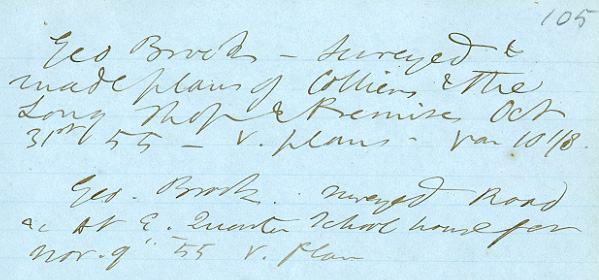 105
Geo Brooks - surveyed &
made plans of Colliers & the
Long Shop & Premises Oct
31st 55 - V. plans - Var 10 1/8.
Geo. Brooks. surveyed Road
&c At E. Quarter School house for
Nov. 9" 55 V. Plan